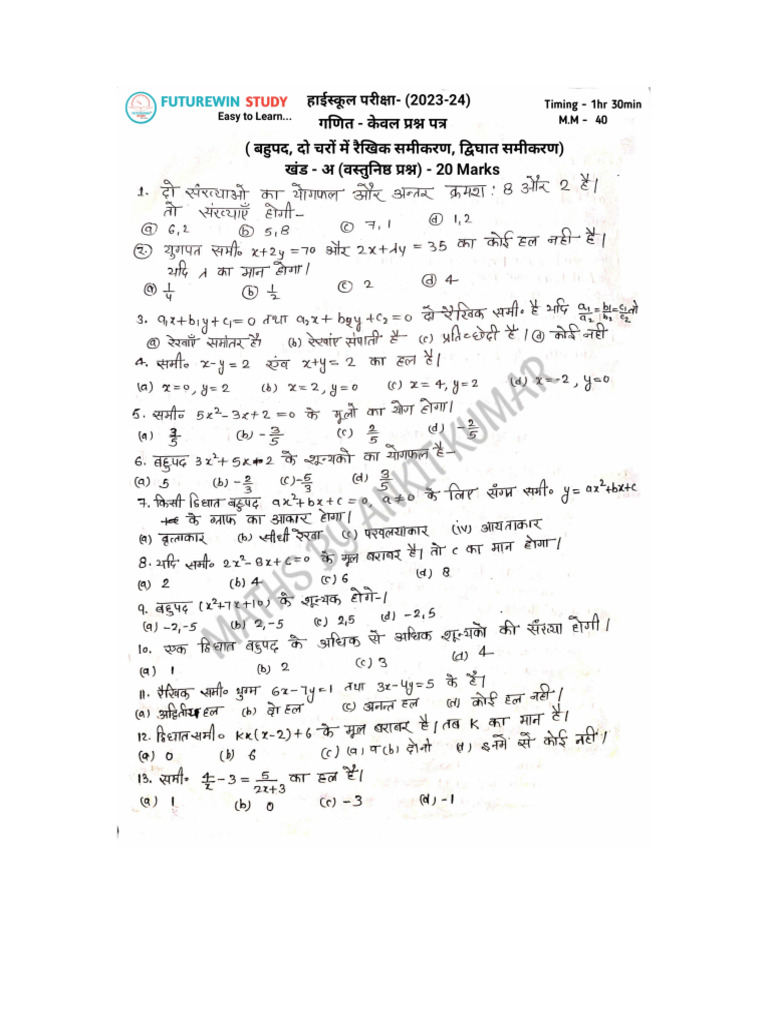 FUTUREWIN STUDY
Easy to Learn...
हाईस्कूल परीक्षा- (2023-24)
Timing - 1hr 30min
गणित - केवल प्रश्न पत्र
M.M - 40
( बहुपद, दो चरों में रैखिक समीकरण, द्विघात समीकरण)
खंड - अ (वस्तुनिष्ठ प्रश्न) - 20 Marks
1. दो संख्याओ का योगफल और अन्तर क्रमश: 8 और 2 है।
तो संख्याएँ होगी-
(a) 6,2 (b) 5,8 (c) 7,1 (d) 1,2
(2.) युगपत समी० x+2y=70 और 2x+λy=35 का कोई हल नही है।
यदि λ का मान होगा।
(a) 1/4 (b) 1/2 (c) 2 (d) 4
3. a₁x+b₁y+c₁=0 तथा a₂x+b₂y+c₂=0 दो रैखिक समी० है यदि a₁/a₂=b₁/b₂=c₁/c₂ तो
(a) रेखाएँ समांतर है। (b) रेखांए संपाती है (c) प्रतिच्छेदी है। (d) कोई नही
4. समी० x-y=2 एंव x+y=2 का हल है।
(a) x=0, y=2 (b) x=2, y=0 (c) x=4, y=2 (d) x=-2, y=0
5. समी० 5x²-3x+2=0 के मूलो का योग होगा।
(a) 3/5 (b) -3/5 (c) 2/5 (d) -2/5
6. बहुपद 3x²+5x-2 के शून्यको का योगफल है-
(a) 5 (b) -2/3 (c) -5/3 (d) 3/5
7. किसी द्विघात बहुपद ax²+bx+c=0, a≠0 के लिए संगत समी० y=ax²+bx+c
के ग्राफ का आकार होगा।
(a) वृत्ताकार (b) सीधी रेखा (c) परवलयाकार (iv) आयताकार
8. यदि समी० 2x²-8x+c=0 के मूल बराबर है। तो c का मान होगा।
(a) 2 (b) 4 (c) 6 (d) 8
9. बहुपद (x²+7x+10) के शून्यक होगे-।
(a) -2,-5 (b) 2,-5 (c) 2,5 (d) -2,5
10. एक द्विघात बहुपद के अधिक से अधिक शून्यको की संख्या होगी।
(a) 1 (b) 2 (c) 3 (d) 4
11. रैखिक समी० युग्म 6x-7y=1 तथा 3x-4y=5 के है।
(a) अद्वितीय हल (b) दो हल (c) अनन्त हल (d) कोई हल नही।
12. द्विघात समी० Kx(x-2)+6 के मूल बराबर है। तब K का मान है।
(a) 0 (b) 6 (c) (a) व (b) दोनो (d) इनमें से कोई नही।
13. समी० 4/x-3=5/2x+3 का हल है।
(a) 1 (b) 0 (c) -3 (d) -1
MATHS BY ANKIT KUMAR